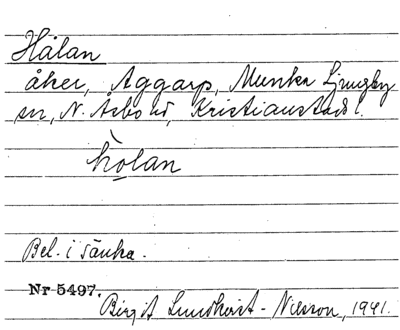 Hålan
åker, Aggarp, Munka Ljungby
sn, N. Åsbo hd, Kristianstads l.
hòlan
Bel. i sänka.
Nr 5497.
Birgit Lundkvist-Nilsson, 1941.